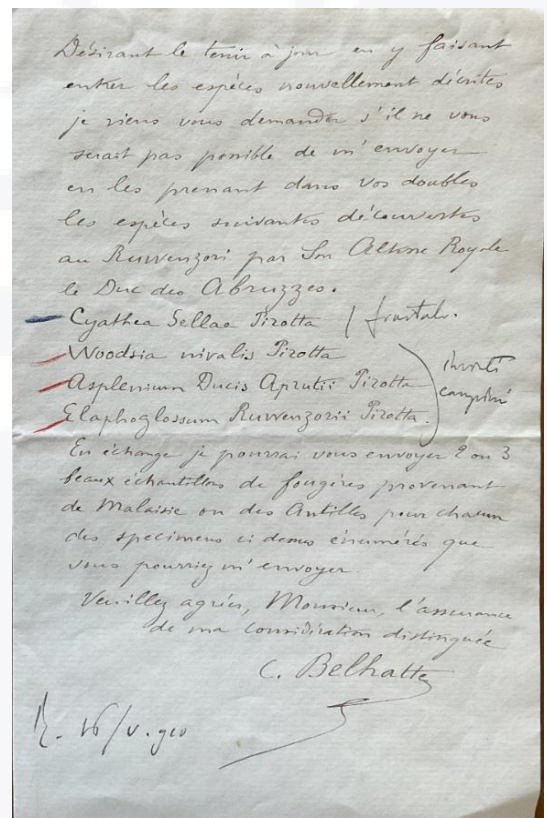 Désirant le tenir à jour en y faisant
entrer les espèces nouvellement décrites
je viens vous demander s'il ne vous
serait pas possible de m'envoyer
en les prenant dans vos doubles
les espèces suivantes découvertes
au Ruwenzori par Son Altesse Royale
le Duc des Abruzzes.
Cyathea Sellae Pirotta
Woodsia nivalis Pirotta
Asplenium Ducis Aprutii Pirotta
Elaphoglossum Ruwenzorii Pirotta.
En échange je pourrai vous envoyer 2 ou 3
beaux échantillons de fougères provenant
de Malaisie ou des Antilles pour chacun
des specimens ci dessus énumérés que
vous pourriez m'envoyer
Veuillez agréer, Monsieur, l'assurance
de ma considération distinguée
C. Belhatte
R. 16/V. 910